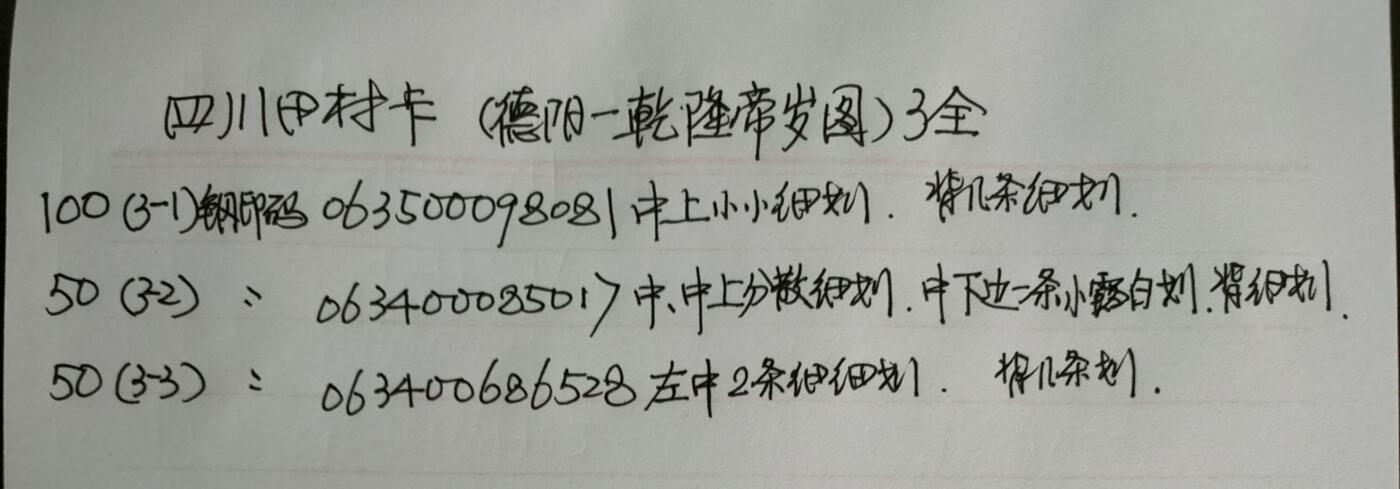 四川田村卡（德阳一乾隆帝岁图）3全
100(3-1)钢印码 063500098081中上小小细划. 背几条细划.
50(3-2) 〃 063400085017中、中上分散细划. 中下边一条小露白划. 背细划.
50(3-3) 〃 063400686528左中2条细细划. 背几条划.